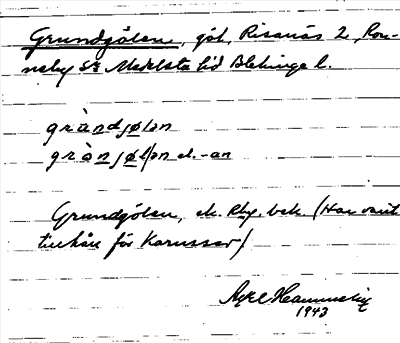 Grundgölen, göl, Risanäs 2, Ron-
neby sn Medelsta hd Blekinge l.
gràndjølən
grànjøl/ən el. -an
Grundgölen, ek. Rbg. bek. (Har varit
tillhåll för Karussar)
Axel
1943